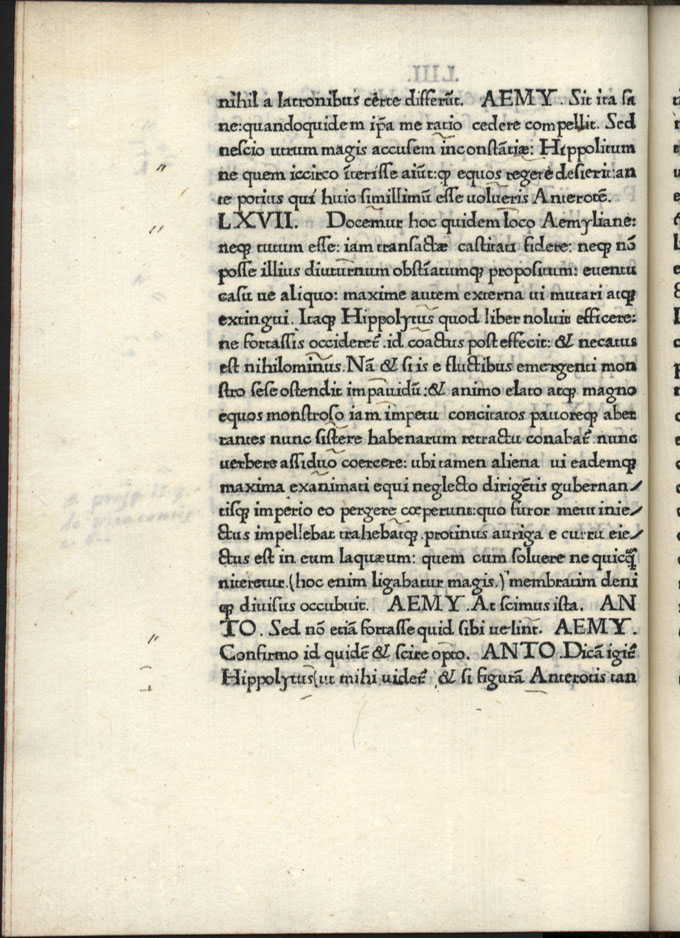 nihil a latronibus cėrte differūt. AEMY. Sit ita sa
ne:quandoquidem ip̃a me ratio cedere compellit. Sed
nescio utrum magis accusem inconstātiæ: Hippolitum
ne quem iccirco īterisse aiūt:qꝫ equos regere desierit:an
te potius quí huic simillimū esse uolueris Anterotē.
LXVII. Docemur hoc quidem loco Aemyliane:
neqꝫ tutum esse: iam transactæ castitati fidere: neqꝫ nō
posse illius diuturnum obstīatumqꝫ propositum: euentu
casu ue aliquo: maxime autem externa ui mutari atqꝫ
extingui. Itaqꝫ Hippolytus quod liber noluit efficere:
ne fortassis occidereť. id coactus post effecit: & necatus
est nihilominus. Nā & si is e fluctibus emergenti mon
stro sese ostendit impauidū:& animo elato atqꝫ magno
equos monstroso iam impetu concitatos pauoreqꝫ aber
rantes nunc sistere habenarum retractu conabať. nunc
uerbere assiduo coercere: ubi tamen aliena ui eademqꝫ
maxima exanimati equi neglecto dirigētis gubernan/
tisqꝫ imperio eo pergere cœperunt:quo furor metu inie/
ctus impellebat trahebatqꝫ. protinus auriga e curru eie/
ctus est in eum laquæum: quem cum soluere ne quicq̃
niteretur.(hoc enim ligabatur magis.) membratim deni
qꝫ diuisus occubuit. AEMY. At scimus ista. AN
TO. Sed nō etiā fortasse quid sibi uelint. AEMY.
Confirmo id quidē & scire opto. ANTO. Dicā igiť
Hippolytus(ut mihi uideť & si figurā Anterotis tan